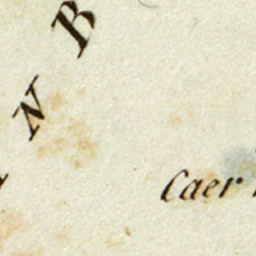 N B
Caer